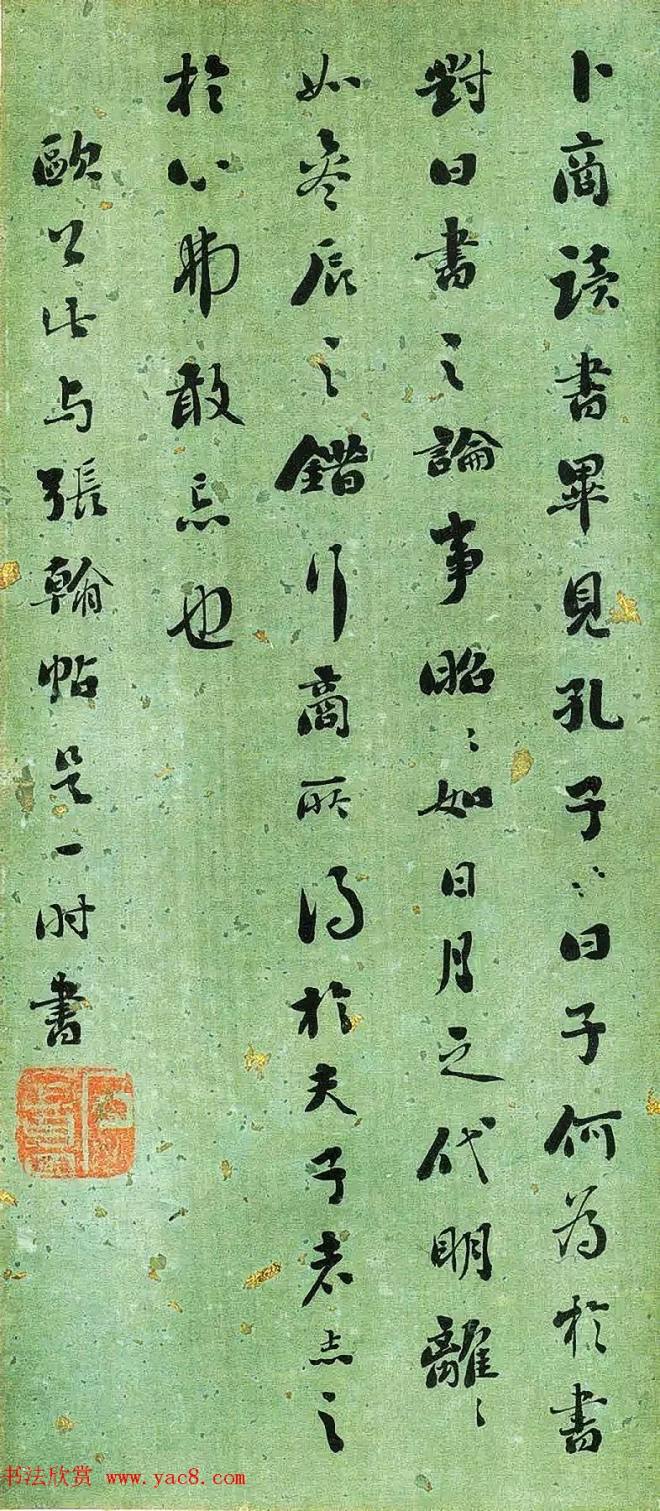 卜商读書畢見孔子〻曰子何為於書
對曰書之論事昭〻如日月之代明離〻
如參辰之錯行商所得於夫子者志之
於心弗敢忘也
歐公此与張翰帖是一时書
书法欣赏 www.yac8.com